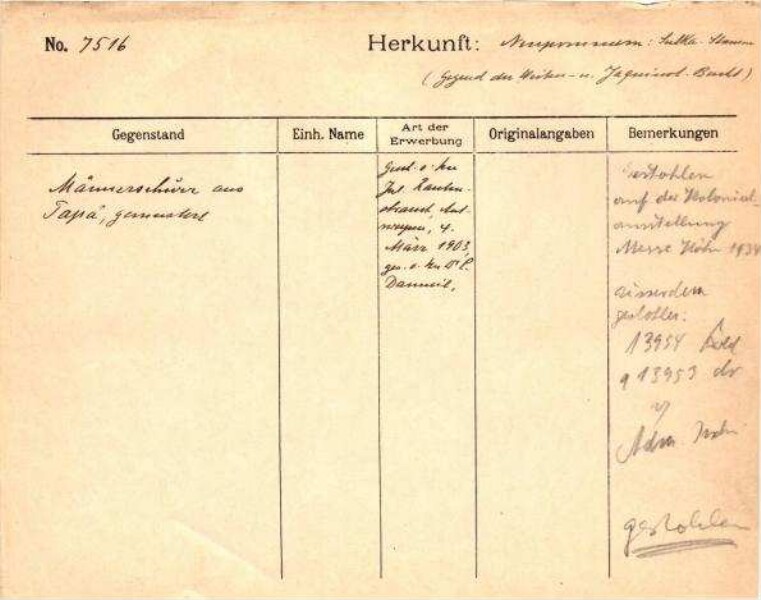 No. 7516
Herkunft: Neupommern: Sulka-Stamm
(Gegend der Weiten- u. Jaquinot-Bucht)
Gegenstand
Einh. Name
Art der Erwerbung
Originalangaben
Bemerkungen
Männerschurz aus
Tapa, gemustert
Gesch. v. Frau
Jul. Rauten-
strauch, Ant-
werpen, 4.
März 1903,
ges. v. Herrn
Danneil.
Gestohlen
auf der Kolonial-
ausstellung
Messe Köln 1934
ausserdem
gestohlen:
13954
13953
gestohlen